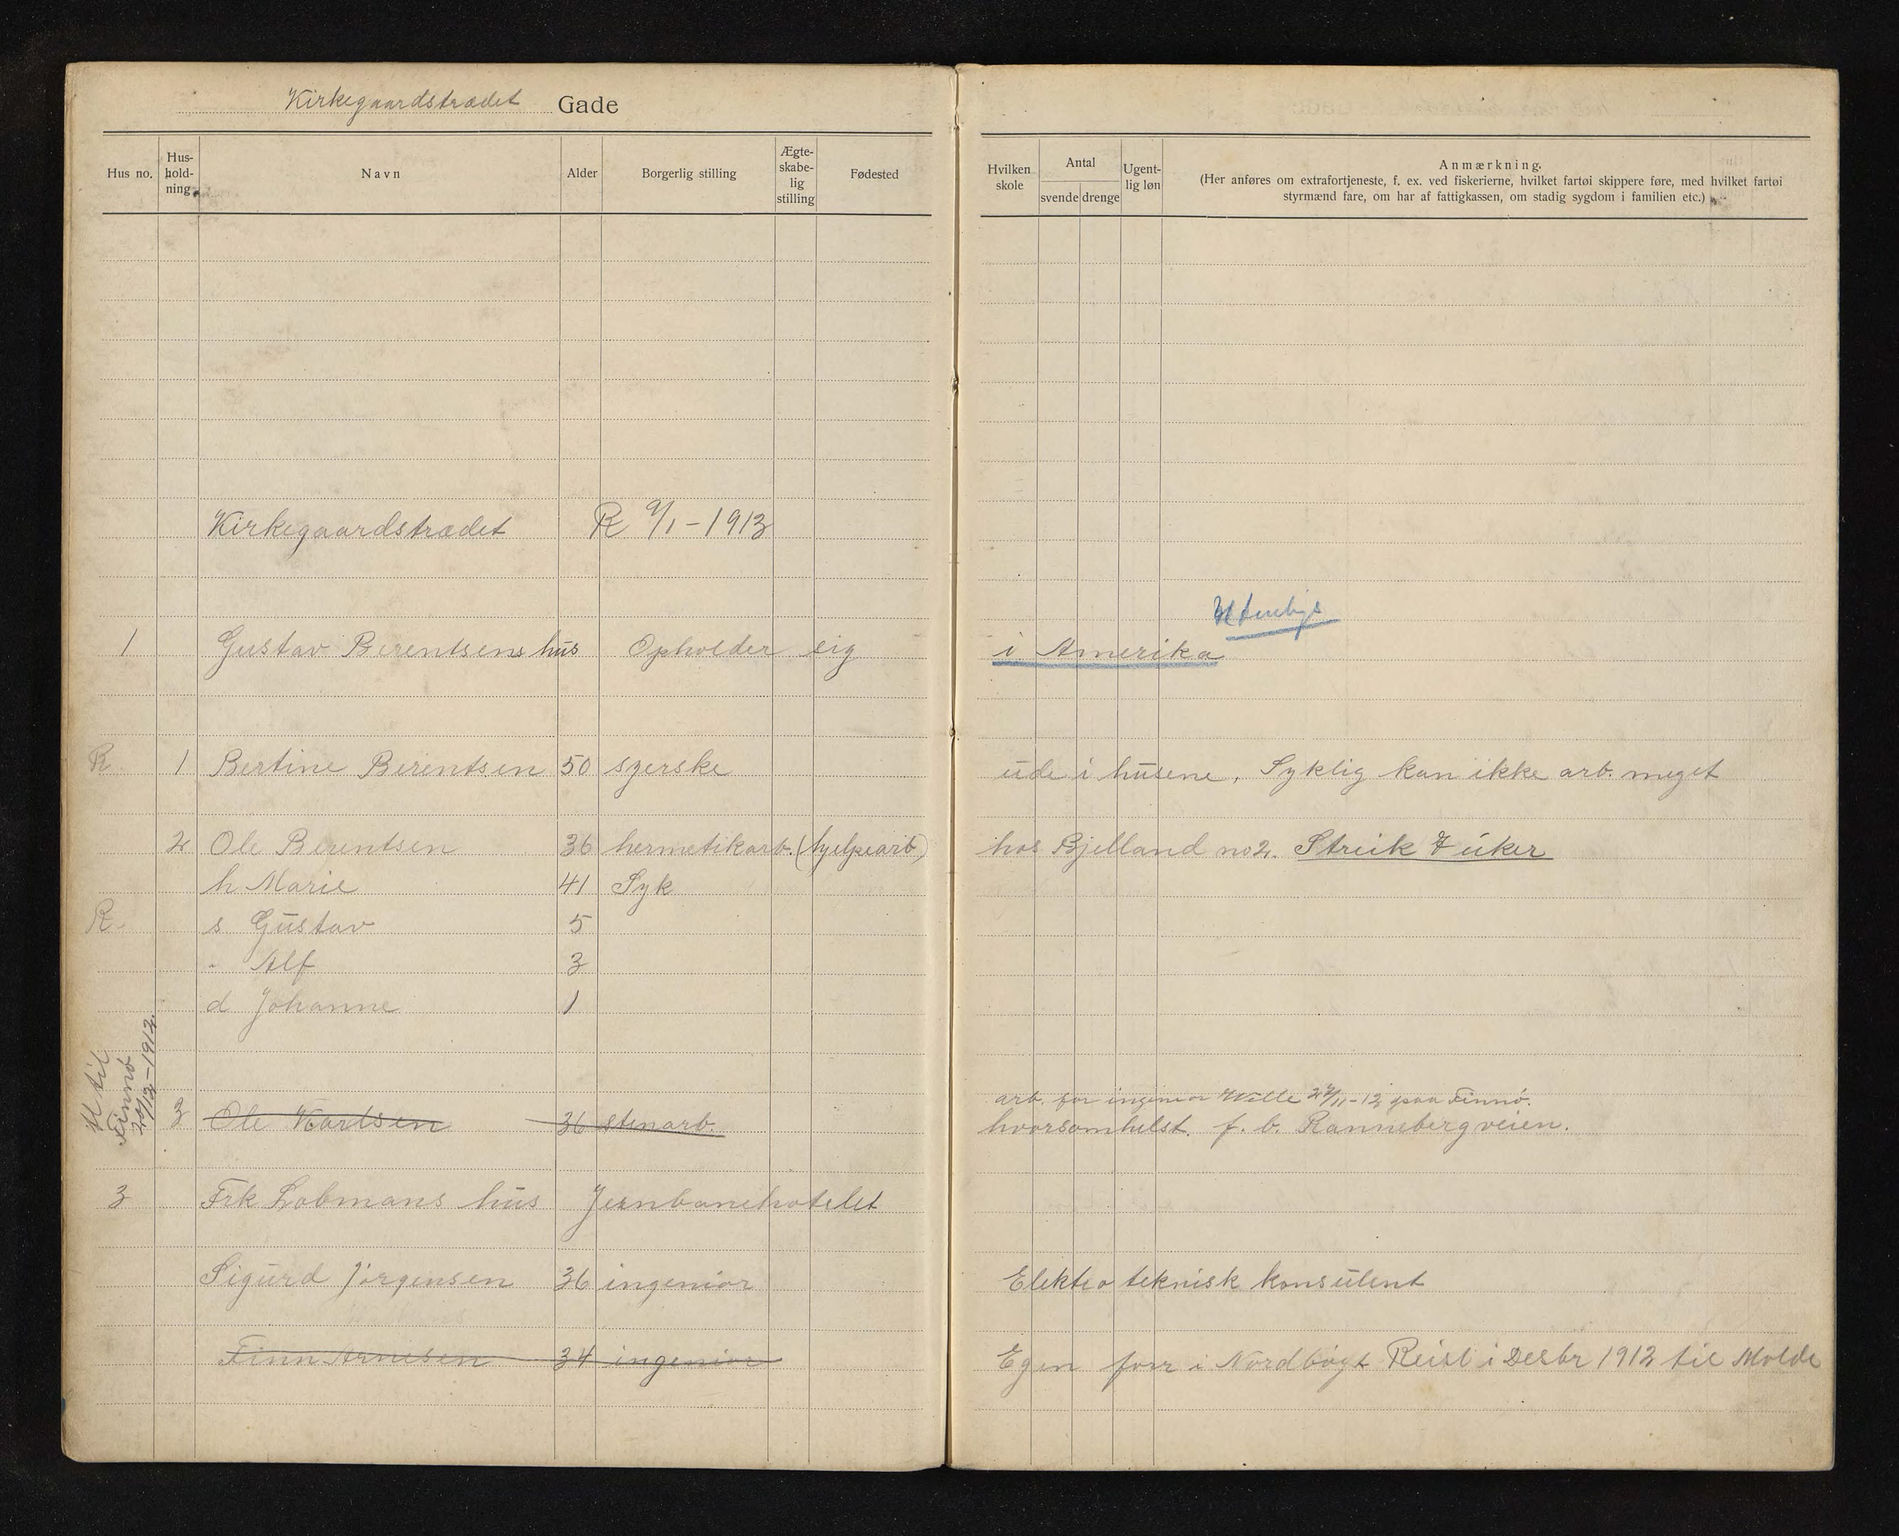 Kirkegaardstrædet Gade
Hus no. Hus-hold-ning. Navn Alder Borgerlig stilling Ægte-skabe-lig stilling Fødested Hvilken skole Antal svende drenge Ugent-lig løn Anmærkning.
(Her anføres om extrafortjeneste, f. ex. ved fiskerierne, hvilket fartøi skippere føre, med hvilket fartøi
styrmænd fare, om har af fattigkassen, om stadig sygdom i familien etc.)
Kirkegaardstrædet R 9/1-1913
1 Gustav Berentsens hus Opholder sig i Amerika
R 1 Bertine Berentsen 50 syerske ude i husene. Syklig kan ikke arb. meget
2 Ole Berentsen 36 hermetikarb. (hjelpearb) hos Bjelland no 2. Streik 7 uker
h Marie 41 Syk
R. s Gustav 5
" Alf 3
d Johanne 1
Ut til
Finnø
/12-1912.
arb. for ingeniør 27/11-12 paa Finnø.
3 Ole Karlsen 36 stenarb. hvorsomhelst. f. b. Rannebergveien.
3 Frk Lobmans hus Jernbanehotelet
Sigurd Jørgensen 36 ingeniør Elektro teknisk konsulent
Finn Arnesen 34 ingeniør Egen forr i Nordbøgt Reist i Desbr 1912 til Molde